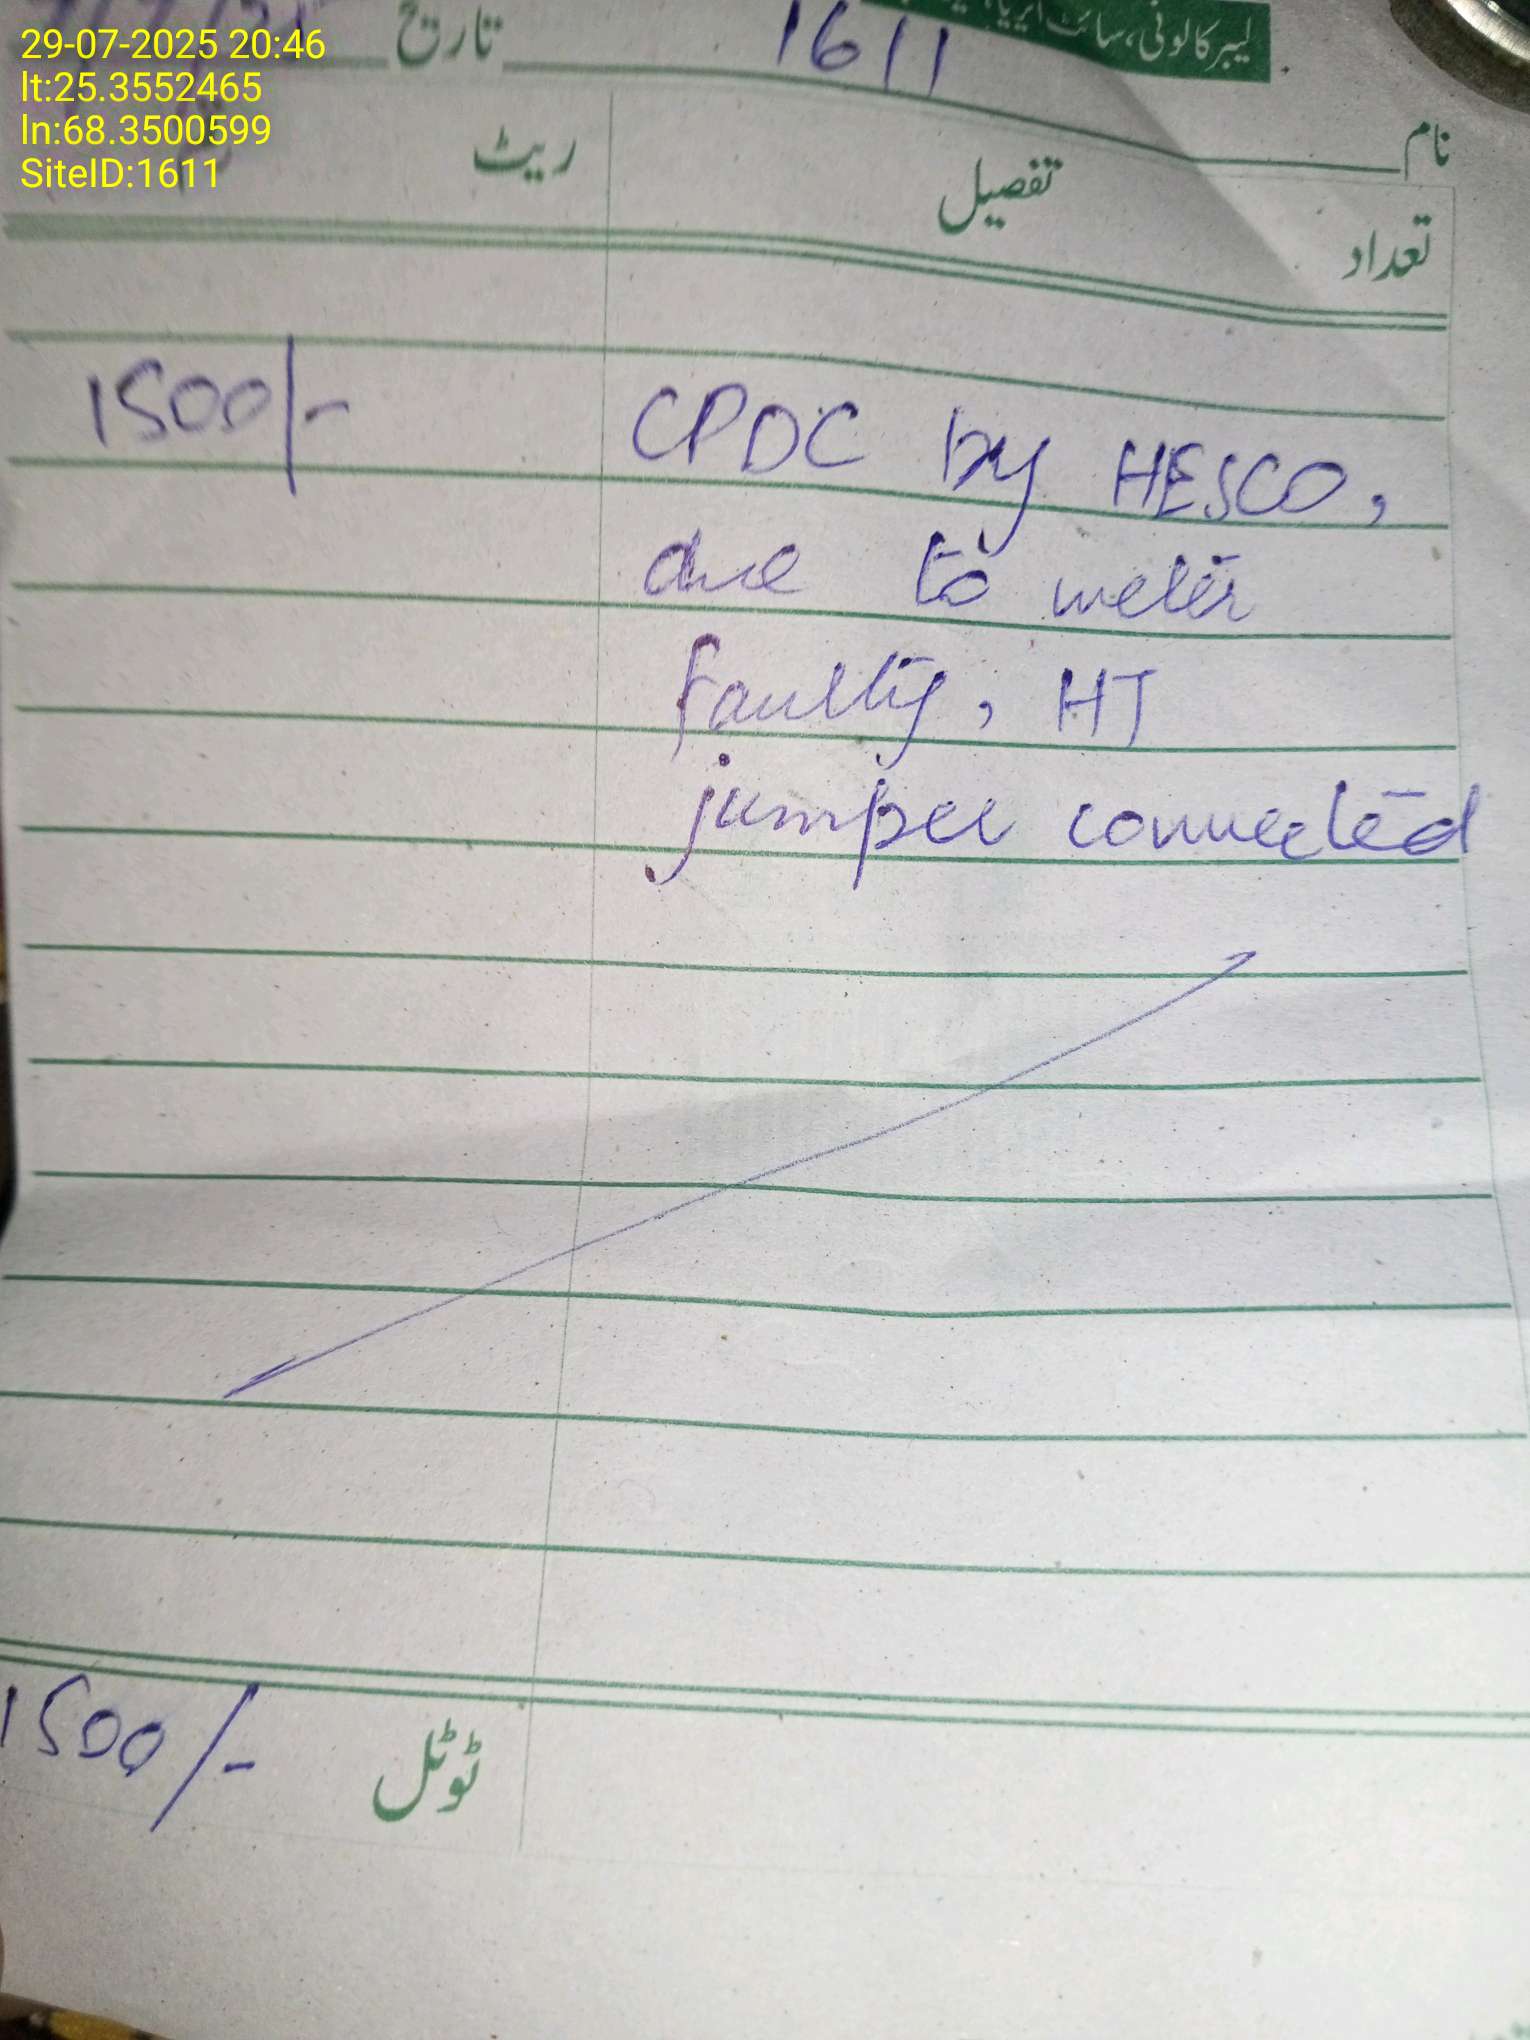 29-07-2025 20:46
lt:25.3552465
ln:68.3500599
SiteID:1611
لیبر کالونی، سائٹ ایریا،
نام 1611 تاریخ
تعداد تفصیل ریٹ
CPDC by HESCO, 1500/-
due to meter
faulty, HT
jumper connected
ٹوٹل 1500/-